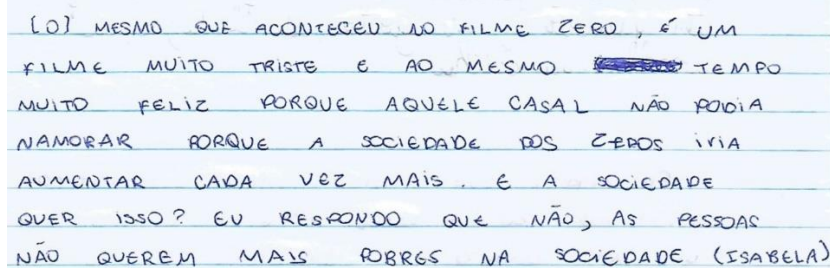 [O] MESMO QUE ACONTECEU NO FILME ZERO, É UM
FILME MUITO TRISTE E AO MESMO TEMPO
MUITO FELIZ PORQUE AQUELE CASAL NÃO PODIA
NAMORAR PORQUE A SOCIEDADE DOS ZEROS IRIA
AUMENTAR CADA VEZ MAIS. E A SOCIEDADE
QUER ISSO? EU RESPONDO QUE NÃO, AS PESSOAS
NÃO QUEREM MAIS POBRES NA SOCIEDADE (ISABELA)